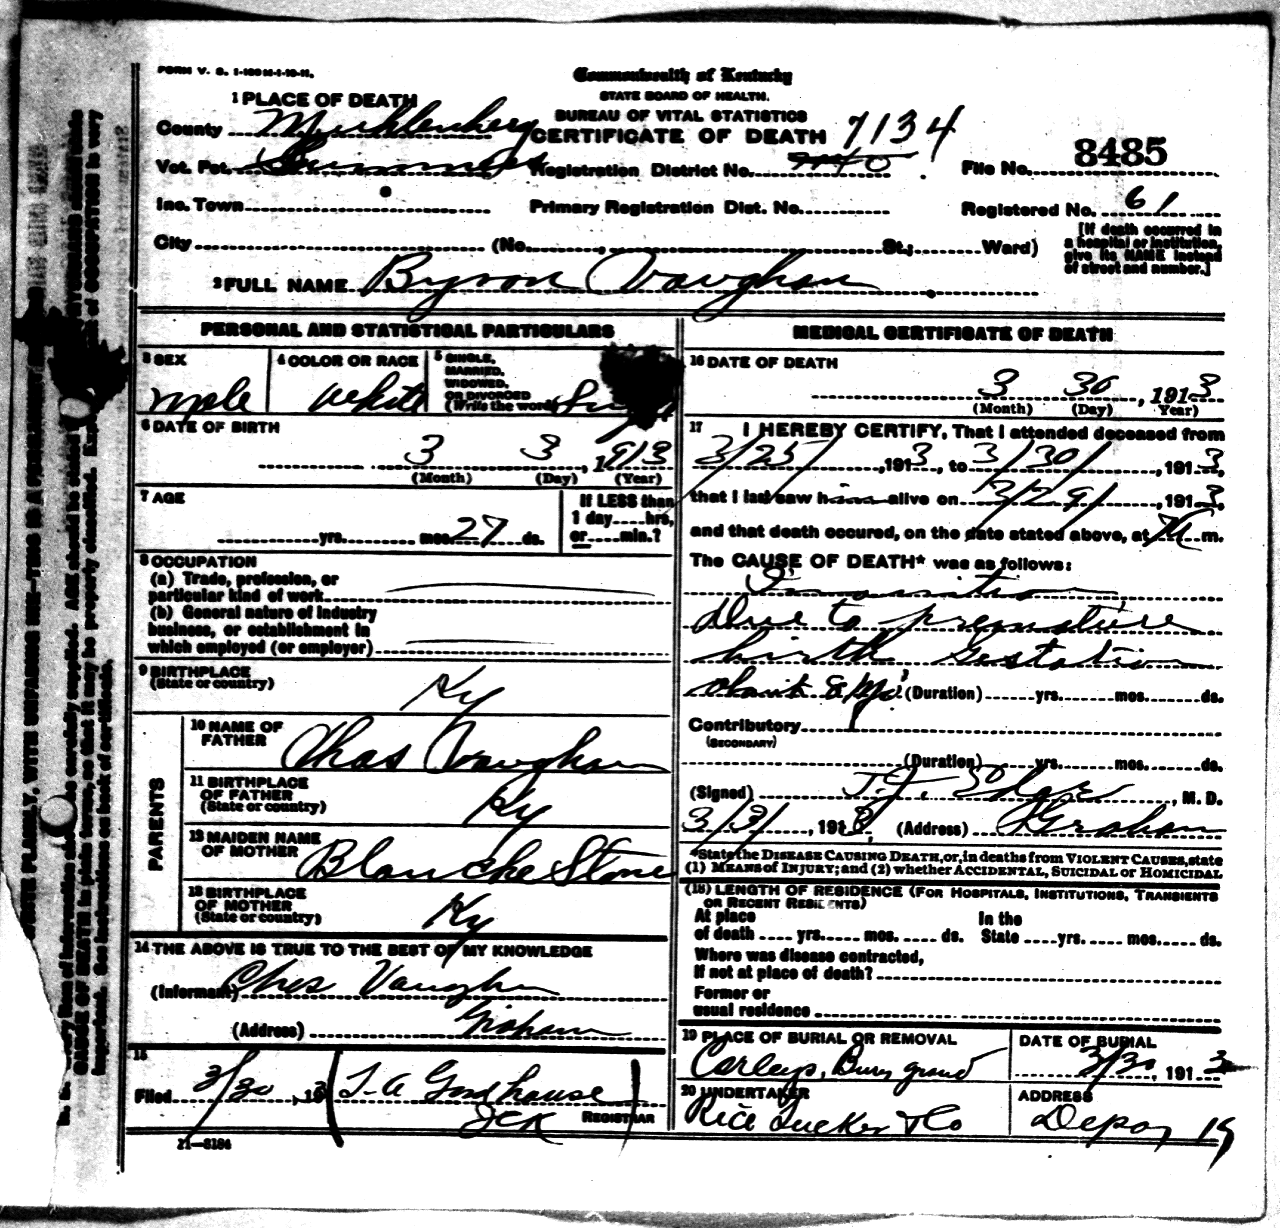 FORM V. S. 1-100M-1-10-11.
Commonwealth of Kentucky
STATE BOARD OF HEALTH.
BUREAU OF VITAL STATISTICS
CERTIFICATE OF DEATH 7134
1 PLACE OF DEATH
County Muhlenberg
Vot. Pct. Registration District No. File No. 8485
Inc. Town Primary Registration Dist. No. Registered No. 61
City (No. St.; Ward)
[If death occurred in
a hospital or institution,
give its NAME instead
of street and number.]
2 FULL NAME Byron Vaughan
PERSONAL AND STATISTICAL PARTICULARS
3 SEX
male
4 COLOR OR RACE
white
5 SINGLE,
MARRIED,
WIDOWED,
OR DIVORCED
(Write the word) Single
6 DATE OF BIRTH
3 3, 1913
(Month) (Day) (Year)
7 AGE
yrs. mos. 27 ds.
If LESS than
1 day hrs,
or min.?
8 OCCUPATION
(a) Trade, profession, or
particular kind of work
(b) General nature of industry
business, or establishment in
which employed (or employer)
9 BIRTHPLACE
(State or country)
Ky
PARENTS
10 NAME OF
FATHER
Chas Vaughan
11 BIRTHPLACE
OF FATHER
(State or country)
Ky
12 MAIDEN NAME
OF MOTHER
Blanche Stone
13 BIRTHPLACE
OF MOTHER
(State or country)
Ky
14 THE ABOVE IS TRUE TO THE BEST OF MY KNOWLEDGE
(Informant) Chas Vaughn
(Address) Graham
15
Filed 3/30, 1913 T-A Goodhouse
JCK REGISTRAR
11—3184
MEDICAL CERTIFICATE OF DEATH
16 DATE OF DEATH
3 30, 1913
(Month) (Day) Year)
17 I HEREBY CERTIFY, That I attended deceased from
3/25/, 1913, to 3/30/, 1913,
that I last saw him alive on 3/29/, 1913,
and that death occured, on the date stated above, at m.
The CAUSE OF DEATH* was as follows:
Inanition
Due to premature
birth Gestation
about (Duration) yrs. mos. ds.
Contributory
(SECONDARY)
(Duration) yrs. mos. ds.
(Signed) , M. D.
3/31, 1913, (Address) Graham
*State the DISEASE CAUSING DEATH, or, in deaths from VIOLENT CAUSES, state
(1) MEANS OF INJURY; and (2) whether ACCIDENTAL, SUICIDAL or HOMICIDAL
(18) LENGTH OF RESIDENCE (FOR HOSPITALS, INSTITUTIONS, TRANSIENTS
OR RECENT RESIDENTS)
At place In the
of death yrs. mos. ds. State yrs. mos. ds.
Where was disease contracted,
If not at place of death?
Former or
usual residence
19 PLACE OF BURIAL OR REMOVAL
DATE OF BURIAL
3/30, 1913
20 UNDERTAKER
Rice Tucker & Co
ADDRESS
Depoy